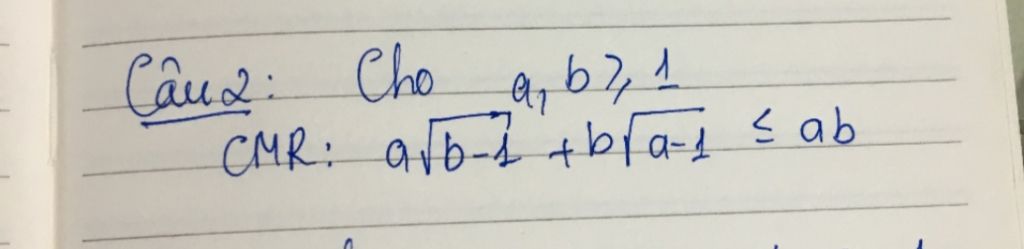 Câu 2: Cho a, b ⩾ 1
CMR: a√(b-1) + b√(a-1) ≤ ab